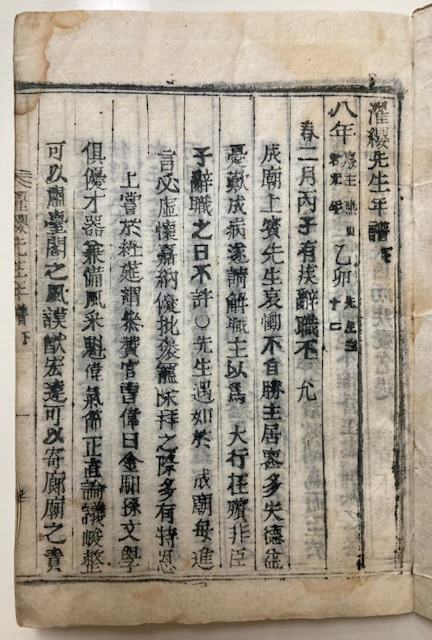 濯纓先生年譜下
八年 廢主燕山君元年 乙卯 先生三十二
春二月丙子有疾辭職不 允
成廟上賓先生哀慟不自勝主居喪多失德益
憂歎成病遂請解職主以爲 大行在殯非臣
子辭職之日不許○先生遇知於 成廟每進
言必虛懷嘉納優批褒寵陞拜之際多有特恩
上嘗於經筵謂參贊官曺偉曰金馹孫文學
俱優才器兼備風采魁偉氣節正直論議峻整
可以肅臺閣之風謨猷宏遠可以寄廊廟之責
濯纓先生年譜下 一